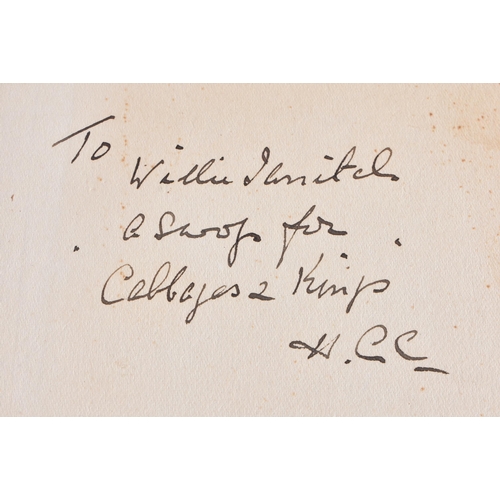 To
Willie
a swop for
Cabbages & Kings
H.C.C.